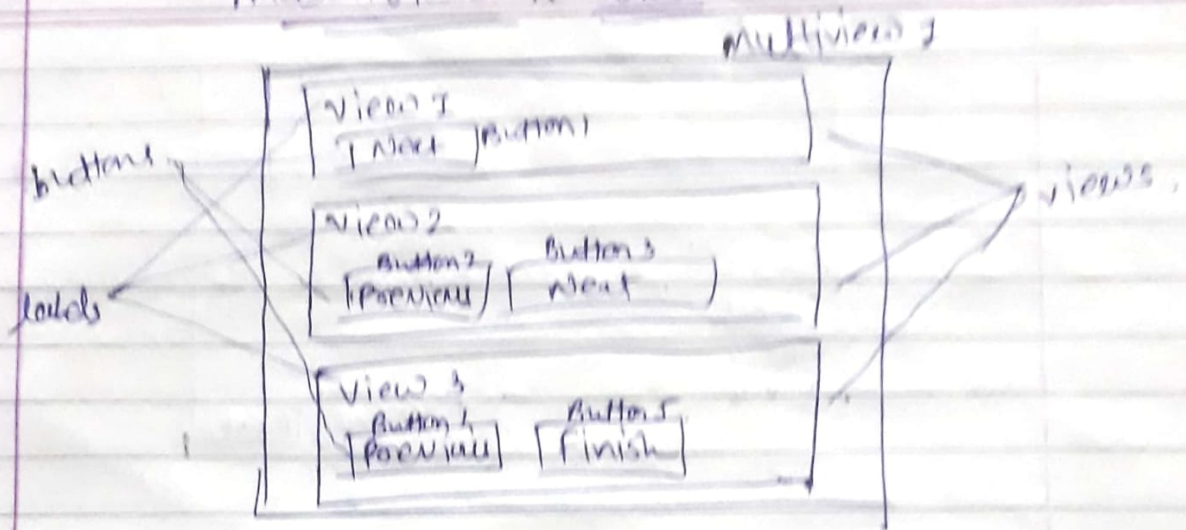 Multiview 1
View 1
Next Button1
Buttons
views.
View 2
Button2 Button3
Previous Next
labels
View 3
Button4 Button5
Previous Finish